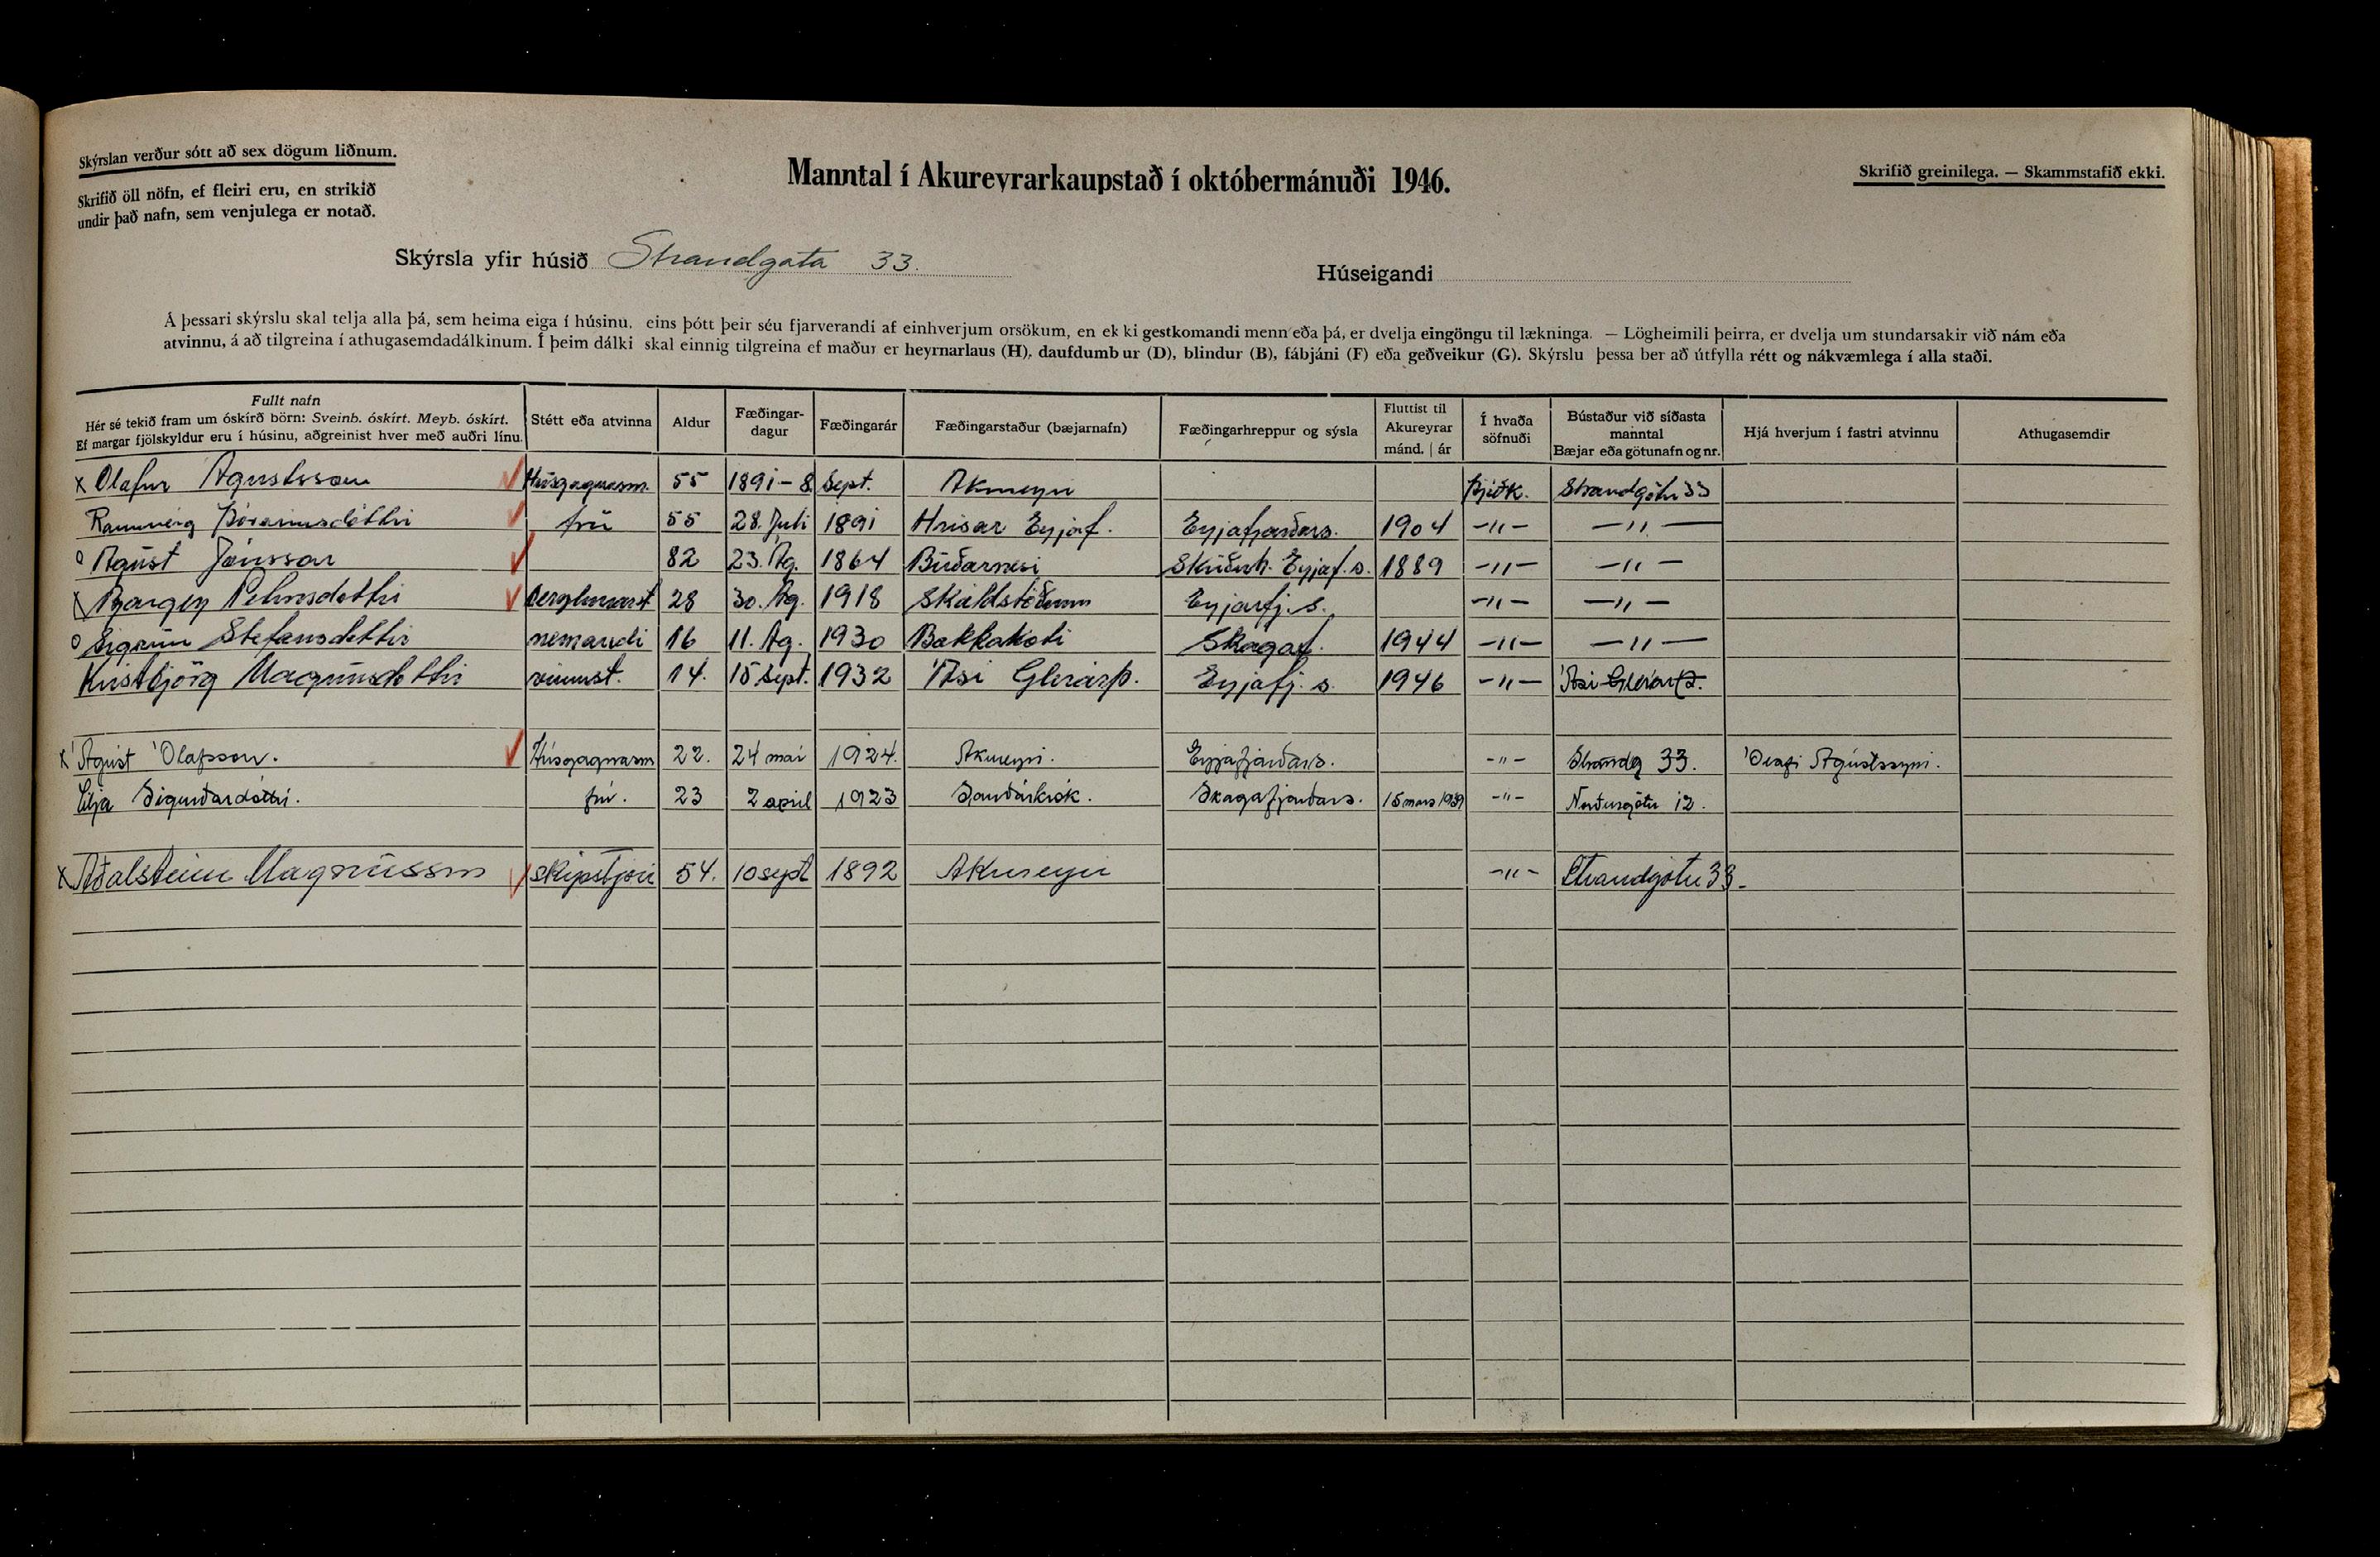 Skýrslan verður sótt að sex dögum liðnum.
Skrifið öll nöfn, ef fleiri eru, en strikið
undir það nafn, sem venjulega er notað.
Manntal í Akureyrarkaupstað í októbermánuði 1946.
Skrifið greinilega. — Skammstafið ekki.
Skýrsla yfir húsið Strandgata 33.
Húseigandi
Á þessari skýrslu skal telja alla þá, sem heima eiga í húsinu, eins þótt þeir séu fjarverandi af einhverjum orsökum, en ekki gestkomandi menn eða þá, er dvelja eingöngu til lækninga. — Lögheimili þeirra, er dvelja um stundarsakir við nám eða
atvinnu, á að tilgreina í athugasemdadálkinum. Í þeim dálki skal einnig tilgreina ef maður er heyrnarlaus (H), daufdumbur (D), blindur (B), fábjáni (F) eða geðveikur (G). Skýrslu þessa ber að útfylla rétt og nákvæmlega í alla staði.
Fullt nafn Hér sé tekið fram um óskírð börn: Sveinb. óskírt. Meyb. óskírt. Ef margar fjölskyldur eru í húsinu, aðgreinist hver með auðri línu. Stétt eða atvinna Aldur Fæðingar-dagur Fæðingarár Fæðingarstaður (bæjarnafn) Fæðingarhreppur og sýsla Fluttist til Akureyrar mánd. | ár Í hvaða söfnuði Bústaður við síðasta manntal Bæjar eða götunafn og nr. Hjá hverjum í fastri atvinnu Athugasemdir
x Olafur Agustsson Húsgagnasm. 55 1891 - 8 Sept. Akureyri Þjóðk. Strandgötu 33
Rannveig Þórarinsdóttir frú 55 28. Juli 1891 Hrisar Eyjaf. Eyjafjarðars. 1904 -"- -"-
o Agúst Jónsson 82 23. Ág. 1864 Búðarnesi Skriðuh. Eyjaf. s. 1889 -"- -"-
x Bargey Petursdottir 28 30. Ág. 1918 Skáldstöðum Eyjafj. s. -"- -"-
o Sigrún Stefansdottir nemandi 16 11. Ág. 1930 Bakkakoti Skagaf. 1944 -"- -"-
Kristbjörg Magnúsdottir vinnust. 14. 15 Sept. 1932 Ási Glerárþ. Eyjafj. s. 1946 -"- Ási Glerárþ.
x Ágúst Ólafsson. Húsgagnasm 22. 24 maí 1924. Akureyri. Eyjafjarðars. -"- Strandg 33. Ólafi Ágústssyni.
Lilja Sigurðardóttir. frú. 23 2 apríl 1923 Sauðárkrók. Skagafjarðars. 15 mars 1939 -"- Norðurgötu 12.
x Aðalsteinn Magnússon skipstjóri 54. 10 sept 1892 Akureyri -"- Strandgötu 33-